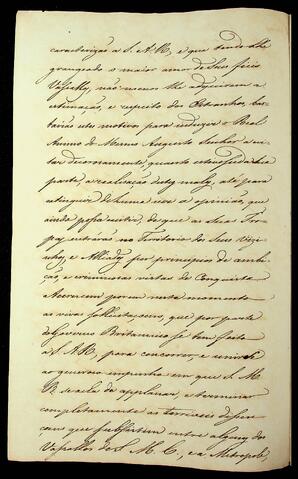 caracterizão a S. A. R., e que tendo-lhe
grangeado o maior amor de Seus fieis
Vassallos, não menos lhe adquirirão a
estimação, e respeito dos Estranhos, bas
tarião estes motivos para induzir o Real
Animo do Mesmo Augusto Senhor a
tar decorosamente, quanto estiver da Sua
parte, a realização destes males, até para
extinguir de huma vez a opinião, que
ainda possa existir, de que as Suas Tro
pas entrárão no Territorio dos Seus Vizi
nhos, e Alliados por principios de ambi
ção, e com vistas de Conquista
Accrescem porem neste momento
as vivas sollicitaçoens, que por parte
do Governo Britannico se tem feito
a S. A. R., para concorrer, e unir-se
ao generoso empenho em que S. M.
B. se acha de applanar, e terminar
completamente as terriveis dissen
çoens que subsistem entre alguns dos
Vassallos de S. M. C., e a Metropole